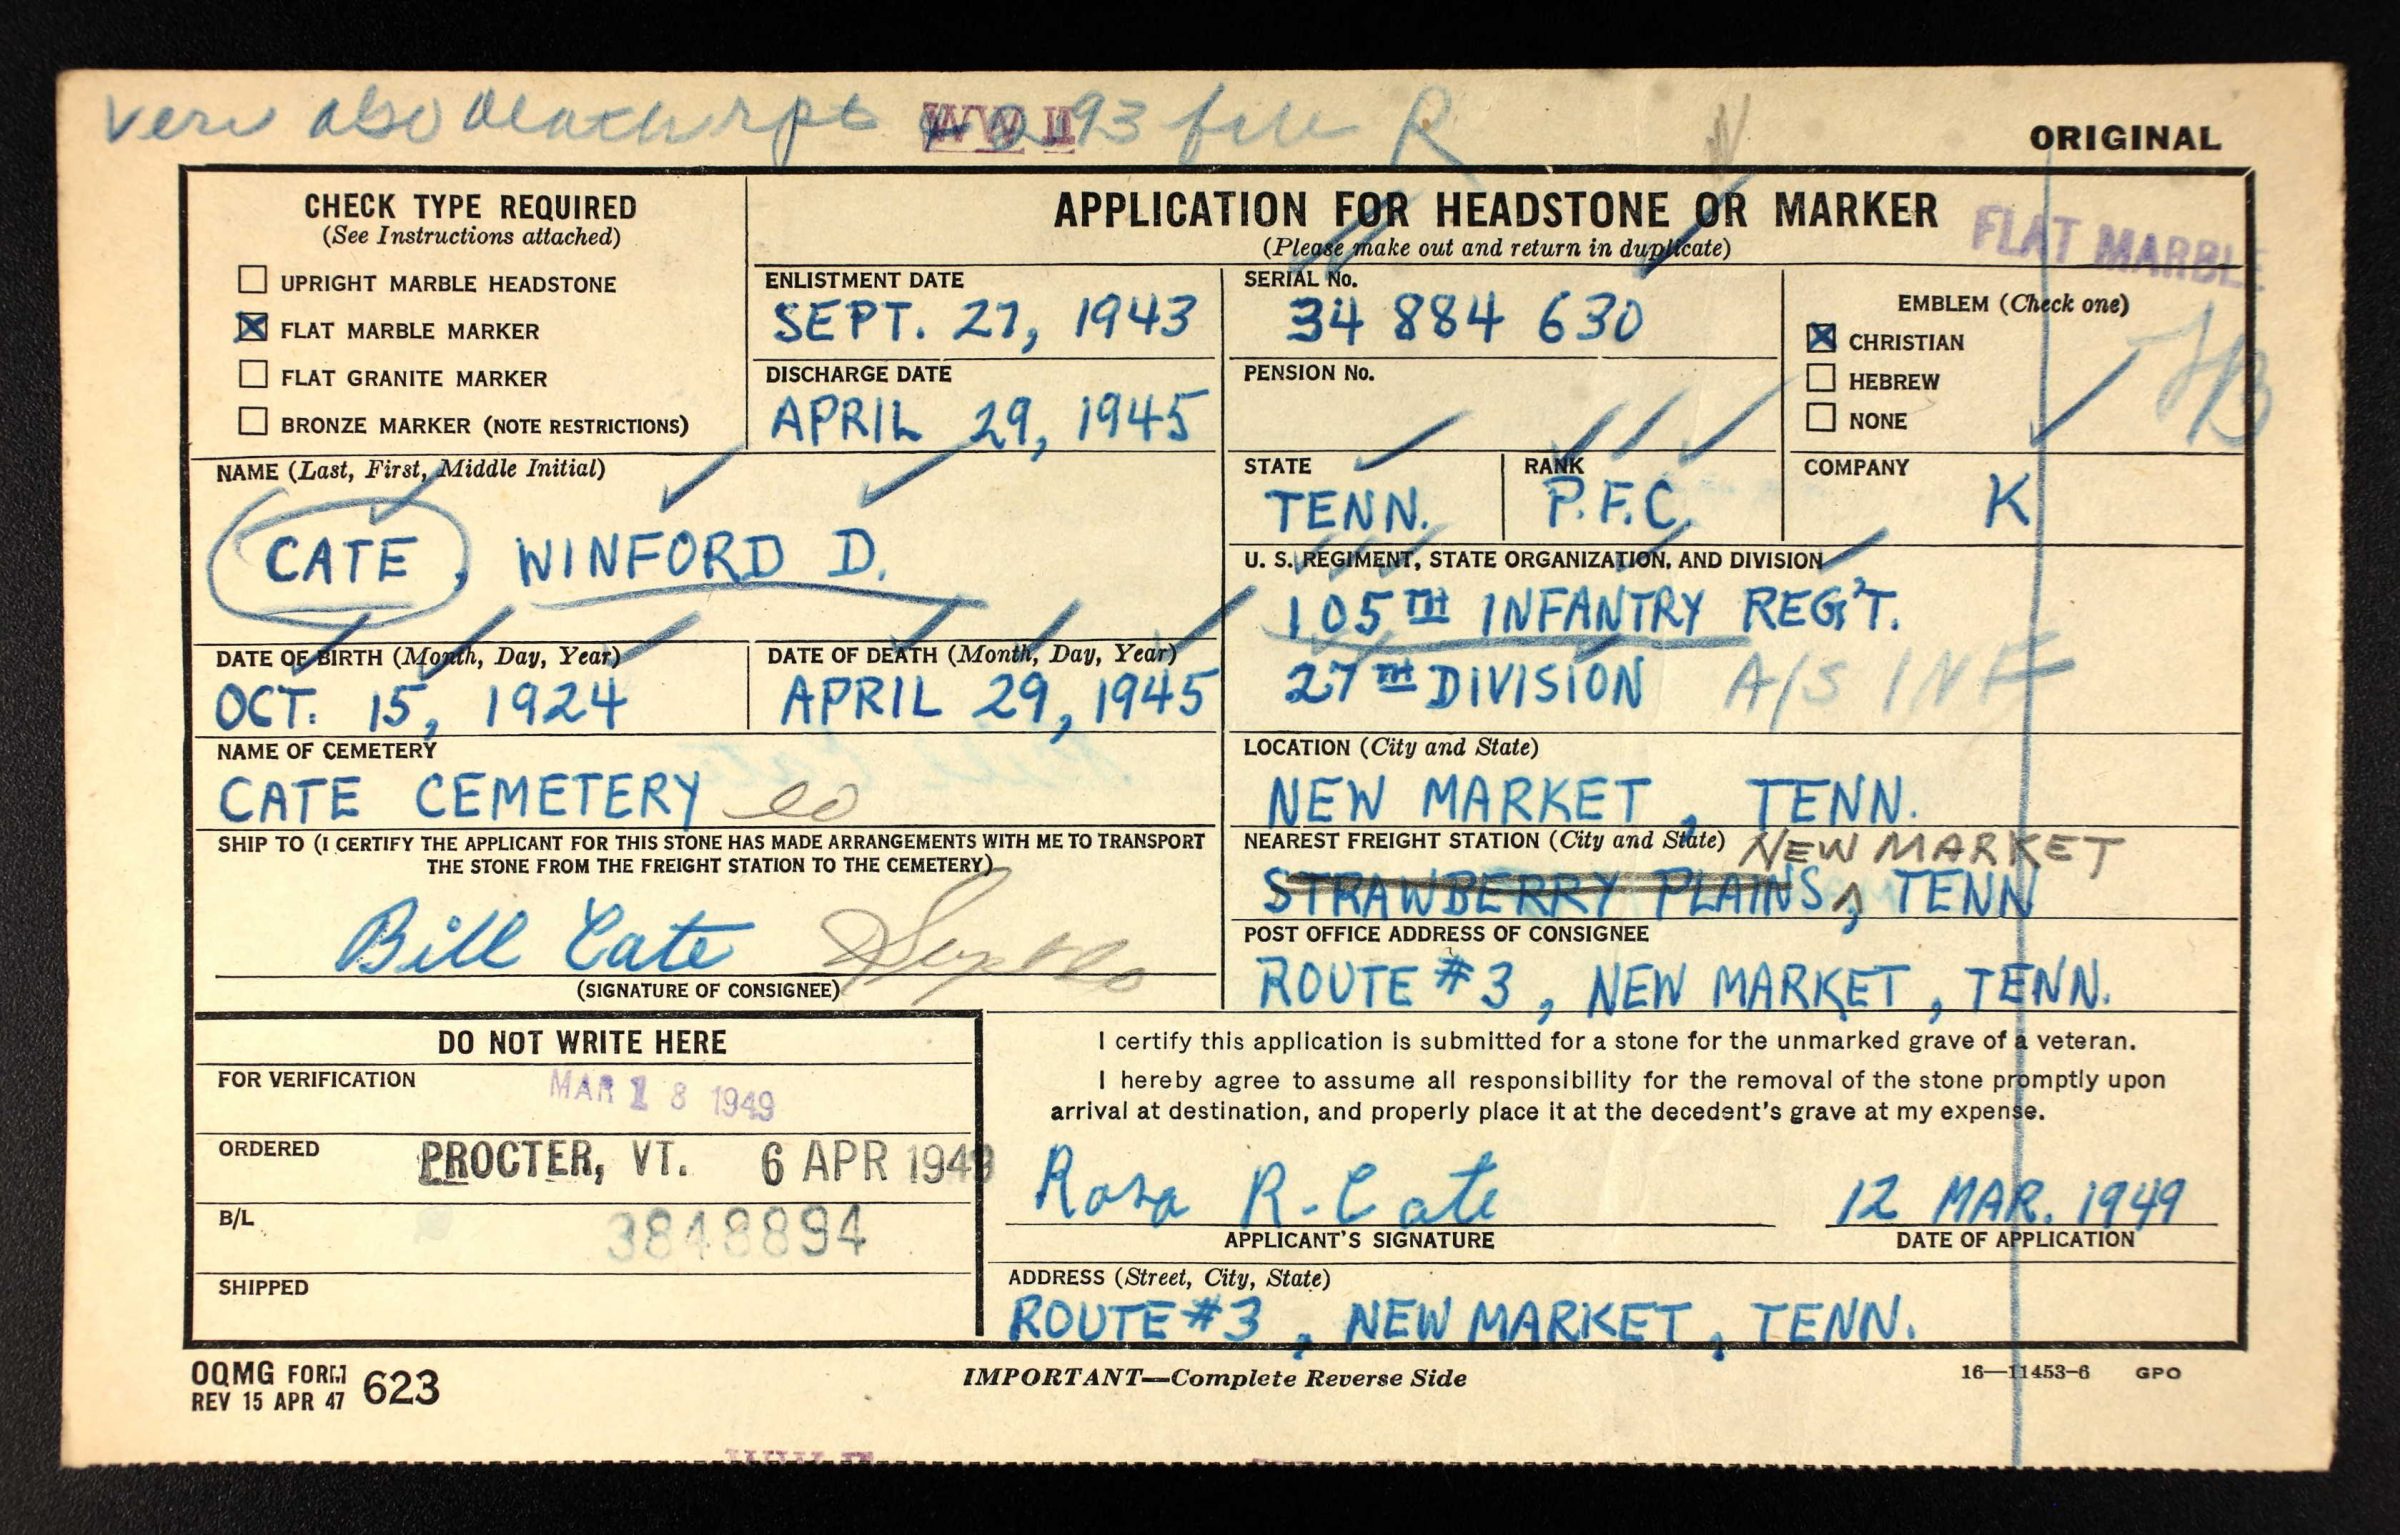 Veri also death rpt 293 file R
WW II
N
ORIGINAL
CHECK TYPE REQUIRED
(See Instructions attached)
UPRIGHT MARBLE HEADSTONE
FLAT MARBLE MARKER
FLAT GRANITE MARKER
BRONZE MARKER (NOTE RESTRICTIONS)
APPLICATION FOR HEADSTONE OR MARKER
(Please make out and return in duplicate)
FLAT MARBLE
ENLISTMENT DATE
SEPT. 27, 1943
DISCHARGE DATE
APRIL 29, 1945
SERIAL No.
34 884 630
PENSION No.
EMBLEM (Check one)
CHRISTIAN
HEBREW
NONE
NAME (Last, First, Middle Initial)
CATE, WINFORD D.
STATE
TENN.
RANK
P.F.C.
COMPANY
K
U. S. REGIMENT, STATE ORGANIZATION, AND DIVISION
105TH INFANTRY REG'T.
27TH DIVISION A/S INF
DATE OF BIRTH (Month, Day, Year)
OCT. 15, 1924
DATE OF DEATH (Month, Day, Year)
APRIL 29, 1945
NAME OF CEMETERY
CATE CEMETERY
LOCATION (City and State)
NEW MARKET, TENN.
SHIP TO (I CERTIFY THE APPLICANT FOR THIS STONE HAS MADE ARRANGEMENTS WITH ME TO TRANSPORT
THE STONE FROM THE FREIGHT STATION TO THE CEMETERY)
Bill Cate
(SIGNATURE OF CONSIGNEE)
NEAREST FREIGHT STATION (City and State) NEW MARKET
STRAWBERRY PLAINS, TENN
POST OFFICE ADDRESS OF CONSIGNEE
ROUTE #3, NEW MARKET, TENN.
DO NOT WRITE HERE
FOR VERIFICATION
MAR 18 1949
ORDERED
PROCTER, VT. 6 APR 1949
B/L
3848894
SHIPPED
I certify this application is submitted for a stone for the unmarked grave of a veteran.
I hereby agree to assume all responsibility for the removal of the stone promptly upon
arrival at destination, and properly place it at the decedent's grave at my expense.
Rosa R. Cate 12 MAR. 1949
APPLICANT'S SIGNATURE DATE OF APPLICATION
ADDRESS (Street, City, State)
ROUTE #3, NEW MARKET, TENN.
OQMG FORM
REV 15 APR 47 623
IMPORTANT—Complete Reverse Side
16—11453-6 GPO